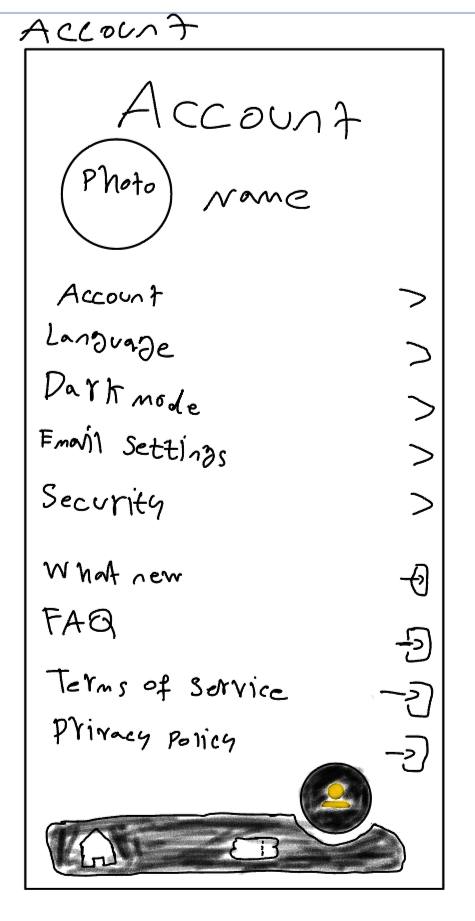 Account
Account
Photo
Name
Account
Language
Dark mode
Email Settings
Security
What new
FAQ
Terms of Service
Privacy Policy